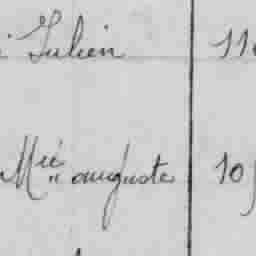 Julien 11
Mie auguste 10